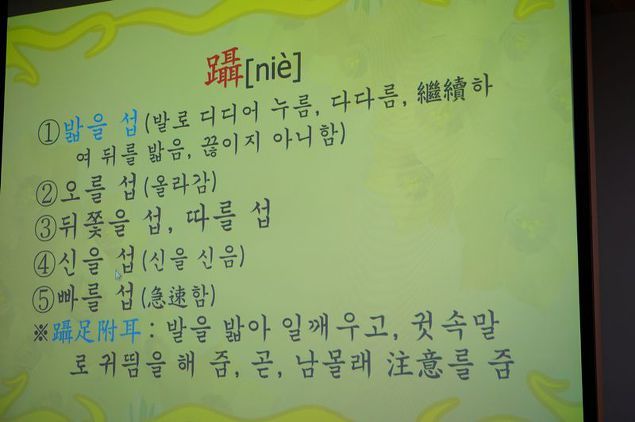 躡[niè]
①밟을 섭(발로 디디어 누름, 다다름, 繼續하
여 뒤를 밟음, 끊이지 아니함)
②오를 섭(올라감)
③뒤쫓을 섭, 따를 섭
④신을 섭(신을 신음)
⑤빠를 섭(急速함)
※躡足附耳: 발을 밟아 일깨우고, 귓속말
로 귀띔을 해 줌, 곧, 남몰래 注意를 줌